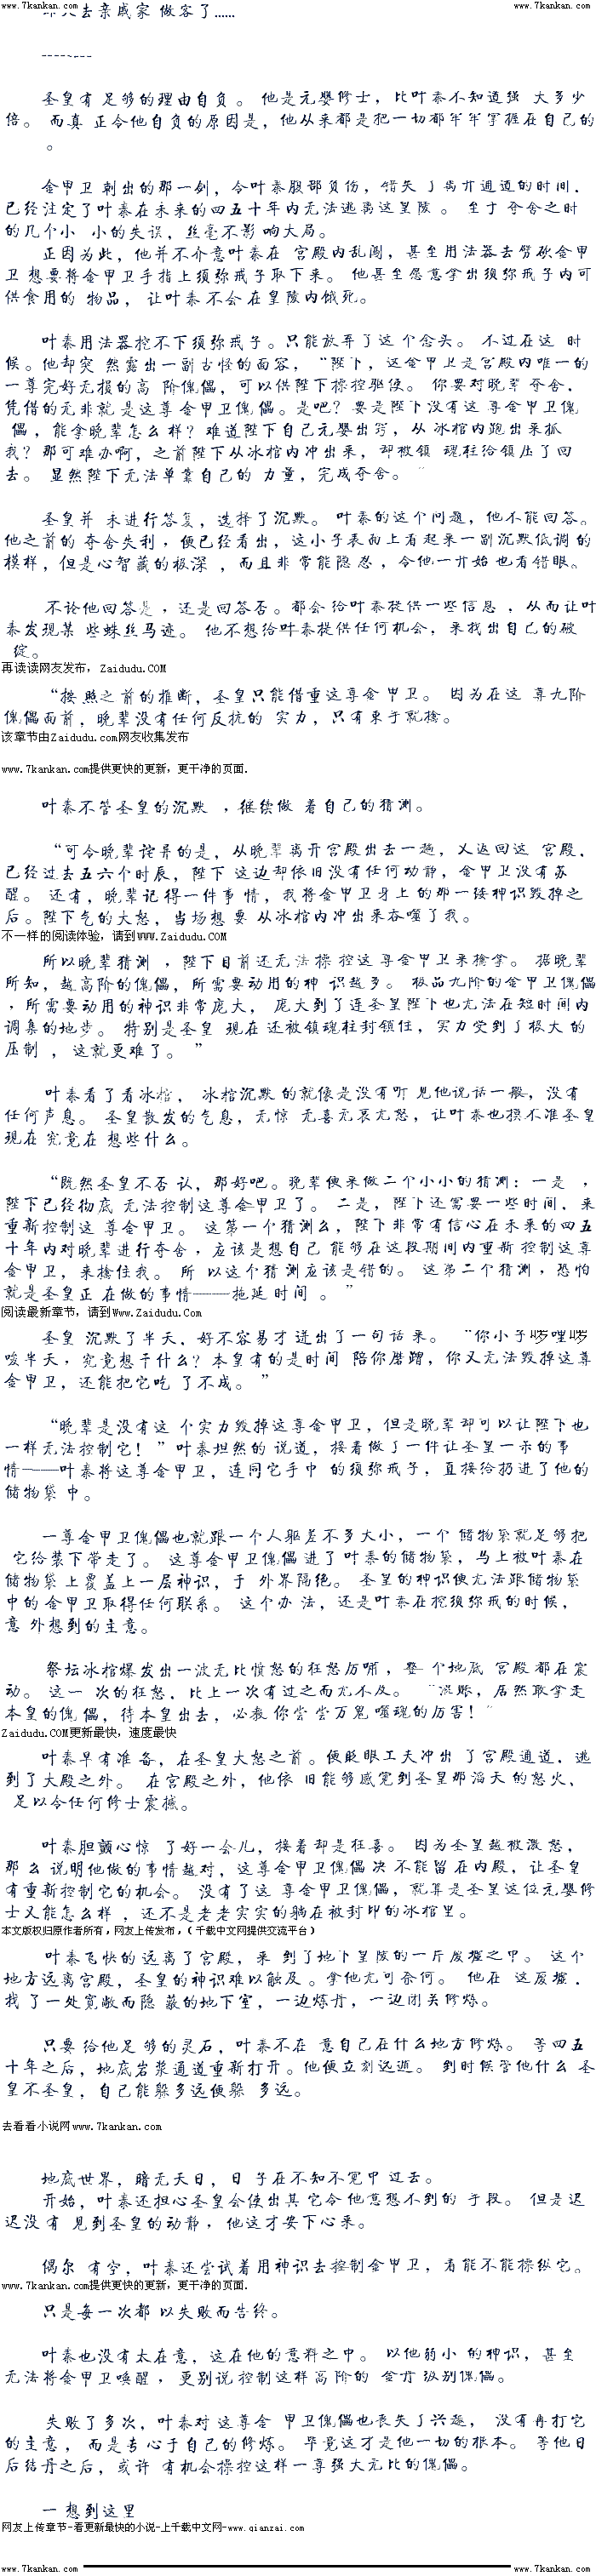 www.7kankan.com www.7kankan.com
昨天去亲戚家 做客了......
--------
圣皇有足够的理由自负。 他是元婴修士，比叶秦不知道强 大多少
倍。 而真 正令他自负的原因是，他从来都是把一切都牢牢掌握在自己的
。
金甲卫 刺出的那一剑，令叶秦腹部负伤，错失 了离开通道的时间，
已经注定了叶秦在未来的四五十年内无法逃离这皇陵 。 至于 夺舍之时
的几个小 小的失误，丝毫不影 响大局。
正因为此，他并不介意叶秦在 宫殿内乱闯，甚至用法器去劈砍金甲
卫 想要将金甲卫手指上须弥戒子取下来。 他甚至愿意拿出须弥戒子内可
供食用的 物品， 让叶秦不会在皇陵内饿死。
叶秦用法器挖不下须弥戒子。只能放弃了这 个念头。 不过在这 时
候。他却突 然露出一副古怪的面容，“陛下，这金甲卫是宫殿内唯一的
一尊完好无损的高 阶傀儡，可以供陛下操控驱使。 你要对晚辈 夺舍，
凭借的无非就 是这尊金甲卫傀儡。是吧？要是陛下没有这 尊金甲卫傀
儡 ，能拿晚辈怎么 样？难道陛下自己元婴出窍，从 冰棺内跑出来抓
我？那可难办啊，之前陛下从冰棺内冲出来，却被镇 魂柱给镇压了回
去。 显然陛下无法单靠自己的 力量，完成夺舍。”
圣皇并 未进行答复，选择了沉默。 叶秦的这个问题，他不能回答。
他之前的 夺舍失利，便已经看出，这小子表面上看起来一副沉默低调的
模样，但是心智藏的极深 ，而且非常能隐忍，令他一开始也看错眼。
不论他回答是，还是回答否。都会给叶秦提供一些信息 ，从而让叶
秦发现某 些蛛丝马迹。 他不想给叶秦提供任何机会，来找出自己的破
绽。
再读读网友发布，Zaidudu.COM
“按照之前的推断，圣皇只能借重这尊金甲卫。 因为在这 尊九阶
傀儡面前，晚辈没有任何反抗的 实力，只有束手就擒。
该章节由Zaidudu.com网友收集发布
www.7kankan.com提供更快的更新，更干净的页面.
叶秦不管圣皇的沉默 ，继续做 着自己的猜测。
“可令晚辈诧异的是，从晚辈离开宫殿出去一趟，又返回这 宫殿，
已经过去五六个时辰，陛下 这边却依旧没有任何动静，金甲卫没有苏
醒。 还有，晚辈记 得一件事 情，我将金甲卫身上的那一缕神识毁掉之
后。陛下气的大怒，当场想 要 从冰棺内冲出来吞噬了我。
不一样的阅读体验，请到WWW.Zaidudu.COM
所以晚辈猜测 ，陛下目前还无法操 控这 尊金甲卫来擒拿。 据晚辈
所知，越高阶的傀儡，所需要动用的神 识越多。 极品九阶的金甲卫傀儡
，所需要动用的神识非常庞大， 庞大到了连圣皇陛下也无法在短时间内
调集的地步。 特别是圣皇 现在 还被镇魂柱封镇住，实力受到了极大 的
压制 ，这就更难了。”
叶秦看了看冰棺， 冰棺沉默 的就像是没有听 见他说话一般，没有
任何声息。 圣皇散发的气息，无惊 无喜无哀无怒，让叶秦也摸不准圣皇
现在 究竟在 想些什么。
“既然圣皇不否 认，那好吧。晚辈便来做二个小小的猜测：一是 ，
陛下已经彻底 无法控制这尊金甲卫了。 二是，陛下还需要一些时间，来
重新控制这 尊金甲卫。 这第一个猜测么，陛下非常有信心在未来的四五
十年内对晚辈进行夺舍，应该是想自己 能够在这段期间内重新 控制这尊
金甲卫，来擒住我。 所 以这个猜 测应该是错的。 这第二个猜测，恐怕
就是圣皇正 在做的事情———拖延 时间 。”
阅读最新章节，请到Www.Zaidudu.Com
圣皇 沉默了半天，好不容易才 迸出了一句话 来。 “你小子 啰哩啰
唆半天，究竟想干什么？本皇有的是时间 陪你磨蹭，你又无法毁掉这尊
金甲卫，还能把它吃 了不成。”
“晚辈是没有这 个实力毁掉这尊金甲卫，但是晚辈却可以让陛下也
一样无法控制它！”叶秦坦然的 说道，接着做了一件让圣皇一呆的事
情———叶秦将这尊金甲卫，连同它手中 的须弥戒子，直接给扔进了他的
储物袋 中。
一尊金甲卫傀儡也就跟一个人躯差不多大小，一个 储物袋就足够把
它给装下带走了。 这尊金甲卫傀儡 进了 叶秦的储物袋，马上被叶秦在
储物袋 上覆盖上一层神识，于 外界隔绝。 圣皇的神识便无法跟储物袋
中的金甲卫取得任何联系。 这个办 法，还是叶秦在挖须弥戒的时候，
意 外想到的主意。
祭坛冰棺爆发出一波无比愤怒的狂怒厉啸，整 个地底 宫殿都在震
动。 这一 次的狂怒，比上一次有过之而无不及。 “混账，居然敢拿走
本皇的傀 儡，待本皇出去，必教 你尝尝万鬼 噬魂的厉害！”
Zaidudu.COM更新最快，速度最快
叶秦早有准 备，在圣皇大怒之前。便眨眼工夫冲出 了宫殿通道，逃
到了大殿之外。 在宫殿之外，他依 旧能够感觉到圣皇那滔天 的怒火，
足以令任何修士震撼。
叶秦胆颤心惊 了好一会儿，接着却是狂喜。 因为圣皇越被激 怒，
那 么 说明他做的事情越对，这尊金甲卫傀儡决 不能留在内殿，让圣皇
有重新控制它的机会。 没有了这 尊金甲卫傀儡，就算是圣皇这位元婴修
士又能怎么样 ，还不是老老实实的躺在被封印的冰棺里。
本文版权归原作者所有，网友上传发布，（千载中文网提供交流平台）
叶秦飞快的 远离了宫殿， 来 到了地下皇陵的一片废墟之中。 这个
地方远离宫殿，圣皇的神识难以触及。拿他无可奈何。 他在 这废墟，
找 了一处宽敞而隐 蔽的地下室，一边炼丹，一边闭关修炼。
只要给他足 够的灵石，叶秦不在 意自己在什么地方修炼。 等四五
十年之后，地底岩浆通道重新打开。他便立刻远遁。 到时候管他什么 圣
皇不圣皇，自己能躲多远便躲 多远。
去看看小说网www.7kankan.com
地底世界，暗无天日，日 子在不知不觉中 过去。
开始，叶秦还担心圣皇会使出其 它令他意想不到的 手段。 但是迟
迟没有 见到圣皇的动静，他这才安下心来。
偶尔 有空，叶秦还尝试着用神识去控制金甲卫，看能不能操纵它。
www.7kankan.com提供更快的更新，更干净的页面.
只是每一次都 以失败而告终。
叶秦也没有太在意，这在他的意料之中。 以他弱小 的神识，甚至
无法将金甲卫唤醒 ，更别说控制这样高阶的 金丹级别傀儡。
失败了多次，叶秦对 这尊金 甲卫傀儡也丧失了兴趣， 没有再打它
的主意，而是专心于自己的修炼。 毕竟这才是他一切的根本。 等他日
后结丹之后，或许 有机会操控这样一尊强大无比的傀儡。
一 想到这里
网友上传章节-看更新最快的小说-上千载中文网-www.qianzai.com
www.7kankan.com www.7kankan.com